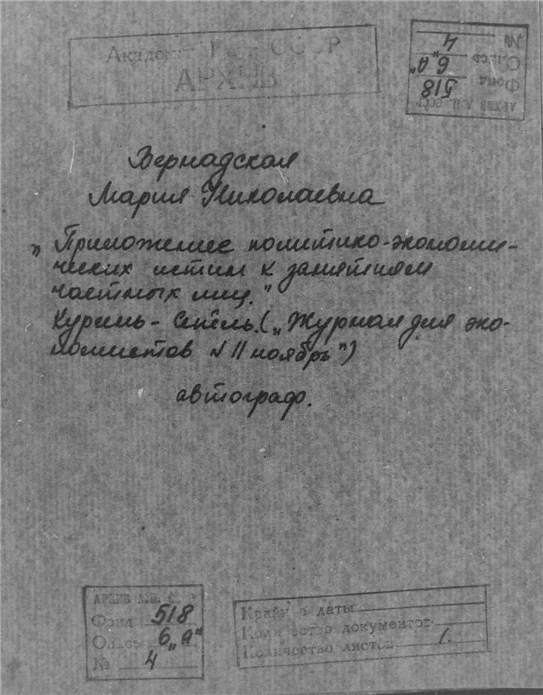 Академия Наук СССР
АРХИВ
АРХИВ А.Н. СССР
Фонд 518
Опись 6 „а"
№ 4
Вернадская
Мария Николаевна
„Приложение политико-экономи-
ческих истин к занятиям
частных лиц."
Курсель-Сенёль. („Журнал для эко-
номистов № 11 ноябрь")
автограф.
АРХИВ А.Н. С
Фонд 518
Опись 6 „а"
№ 4
Крайн. даты
Количество документов
Количество листов 1.